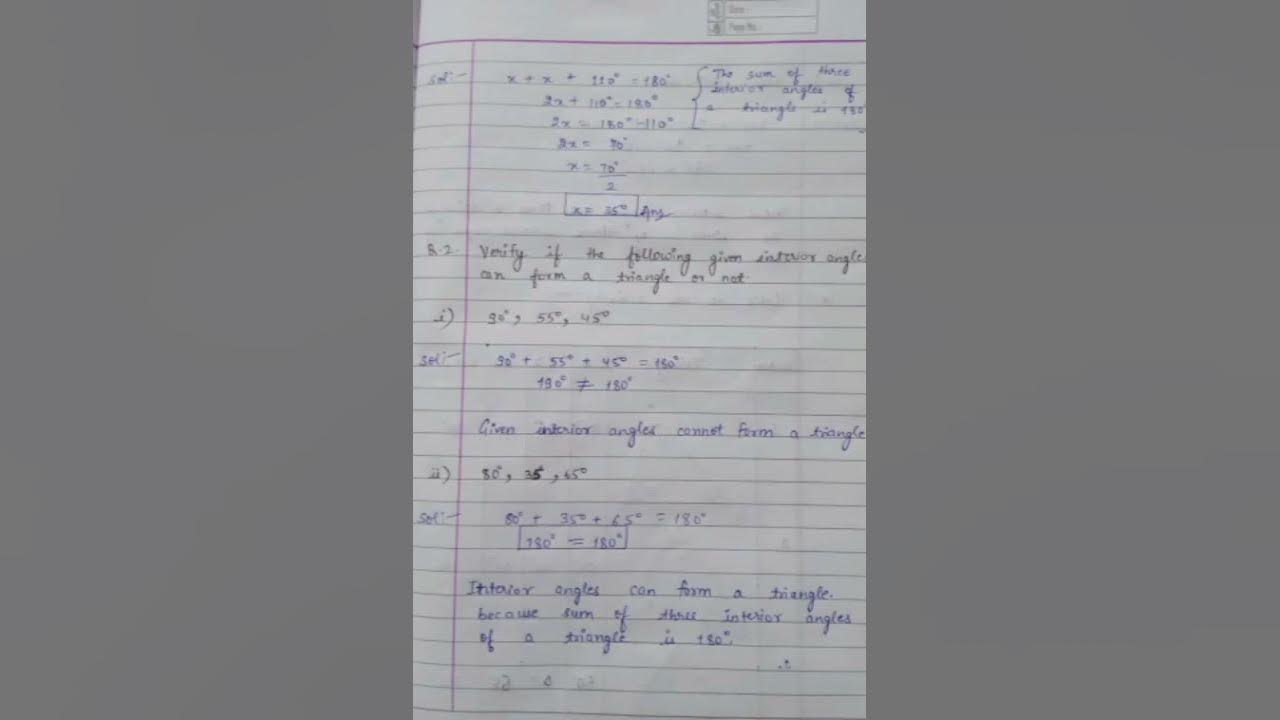 Date :
Page No. :
Sol:- x + x + 110° = 180° { The sum of three
interior angles of
2x + 110° = 180° a triangle is 180°
2x = 180° - 110°
2x = 70°
x = 70°
2
x = 35° Ans
Q.2. Verify if the following given interior angle
can form a triangle or not.
i) 90°, 55°, 45°
Sol:- 90° + 55° + 45° = 180°
190° ≠ 180°
Given interior angles cannot form a triangle
ii) 80°, 35°, 65°
Sol:- 80° + 35° + 65° = 180°
180° = 180°
Interior angles can form a triangle.
because sum of three interior angles
of a triangle is 180°.